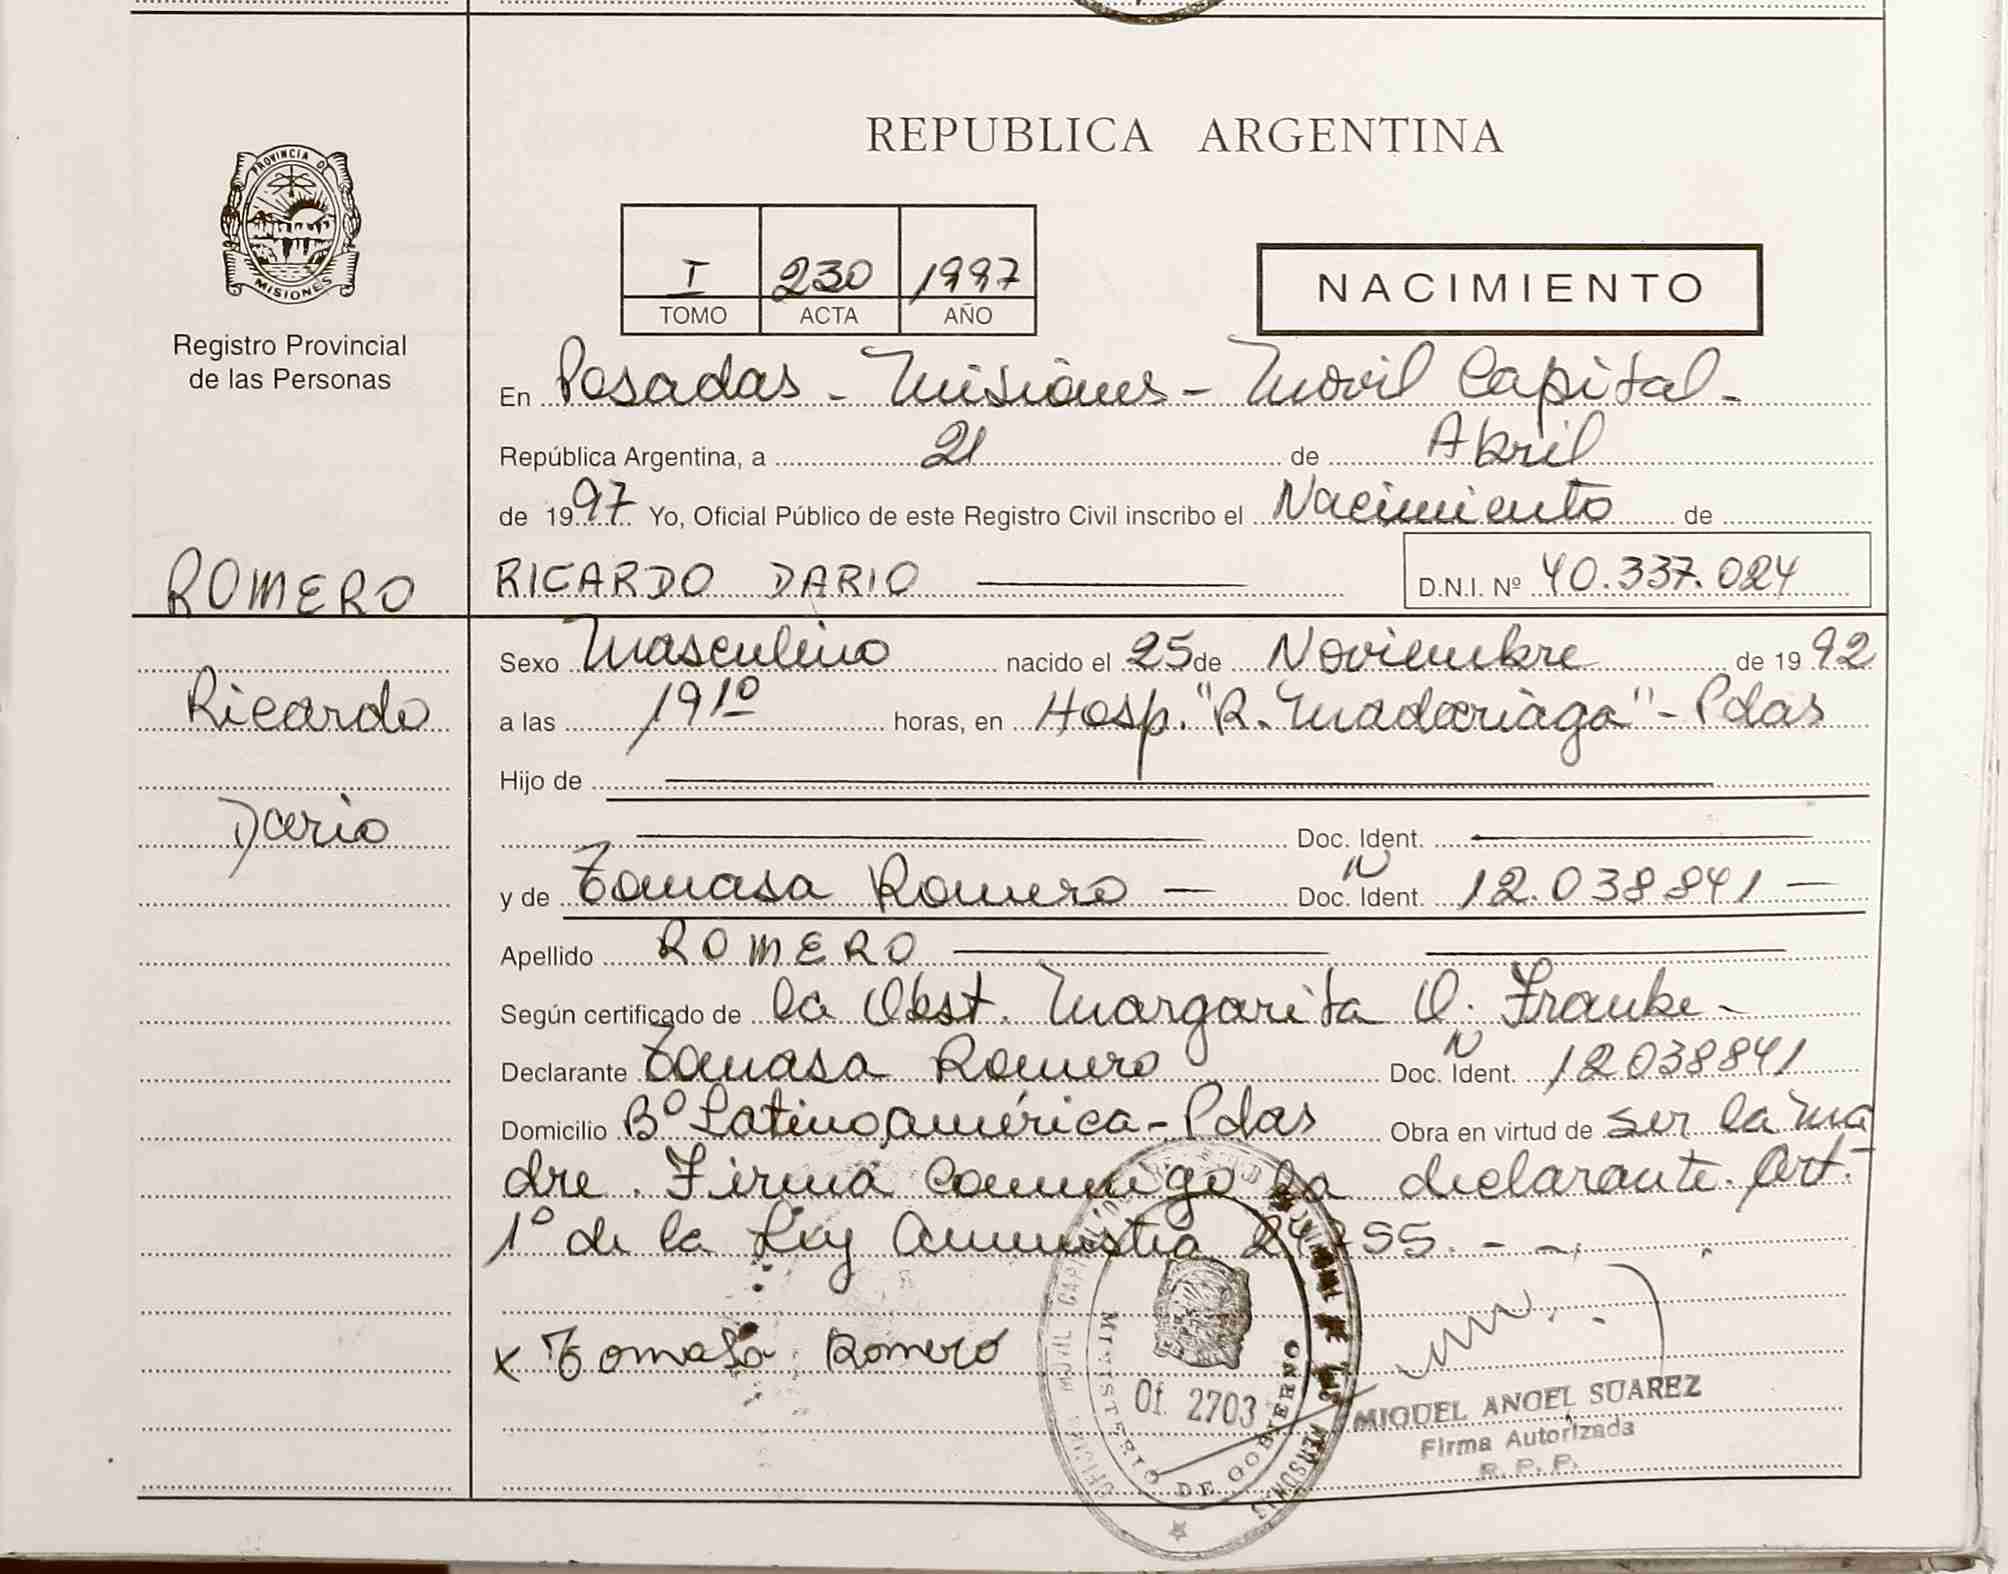 REPUBLICA ARGENTINA
PROVINCIA DE
MISIONES
Registro Provincial
de las Personas
I 230 1997
TOMO ACTA AÑO
NACIMIENTO
En Posadas - Misiones - Movil Capital -
República Argentina, a 21 de Abril
de 1997 Yo, Oficial Público de este Registro Civil inscribo el Nacimiento de
ROMERO RICARDO DARIO D.N.I. Nº 40.337.024
Sexo Masculino nacido el 25 de Noviembre de 1992
Ricardo a las 19 10 horas, en Hosp. "R. Madariaga" - Pdas
Hijo de
Dario Doc. Ident.
y de Tomasa Romero — Doc. Ident. N 12.038841 —
Apellido ROMERO
Según certificado de la Obst. Margarita O. Franke -
Declarante Tomasa Romero Doc. Ident. N 12038841
Domicilio Bº Latinoamérica - Pdas Obra en virtud de ser la ma
dre. Firma conmigo la declarante. Art.
1º de la Ley Amnistia 24755. - -
x Tomasa Romero
OFICINA MOVIL CAPITAL
MINISTERIO DE GOBIERNO
Of. 2703
MIGUEL ANGEL SUAREZ
Firma Autorizada
R. P. P.